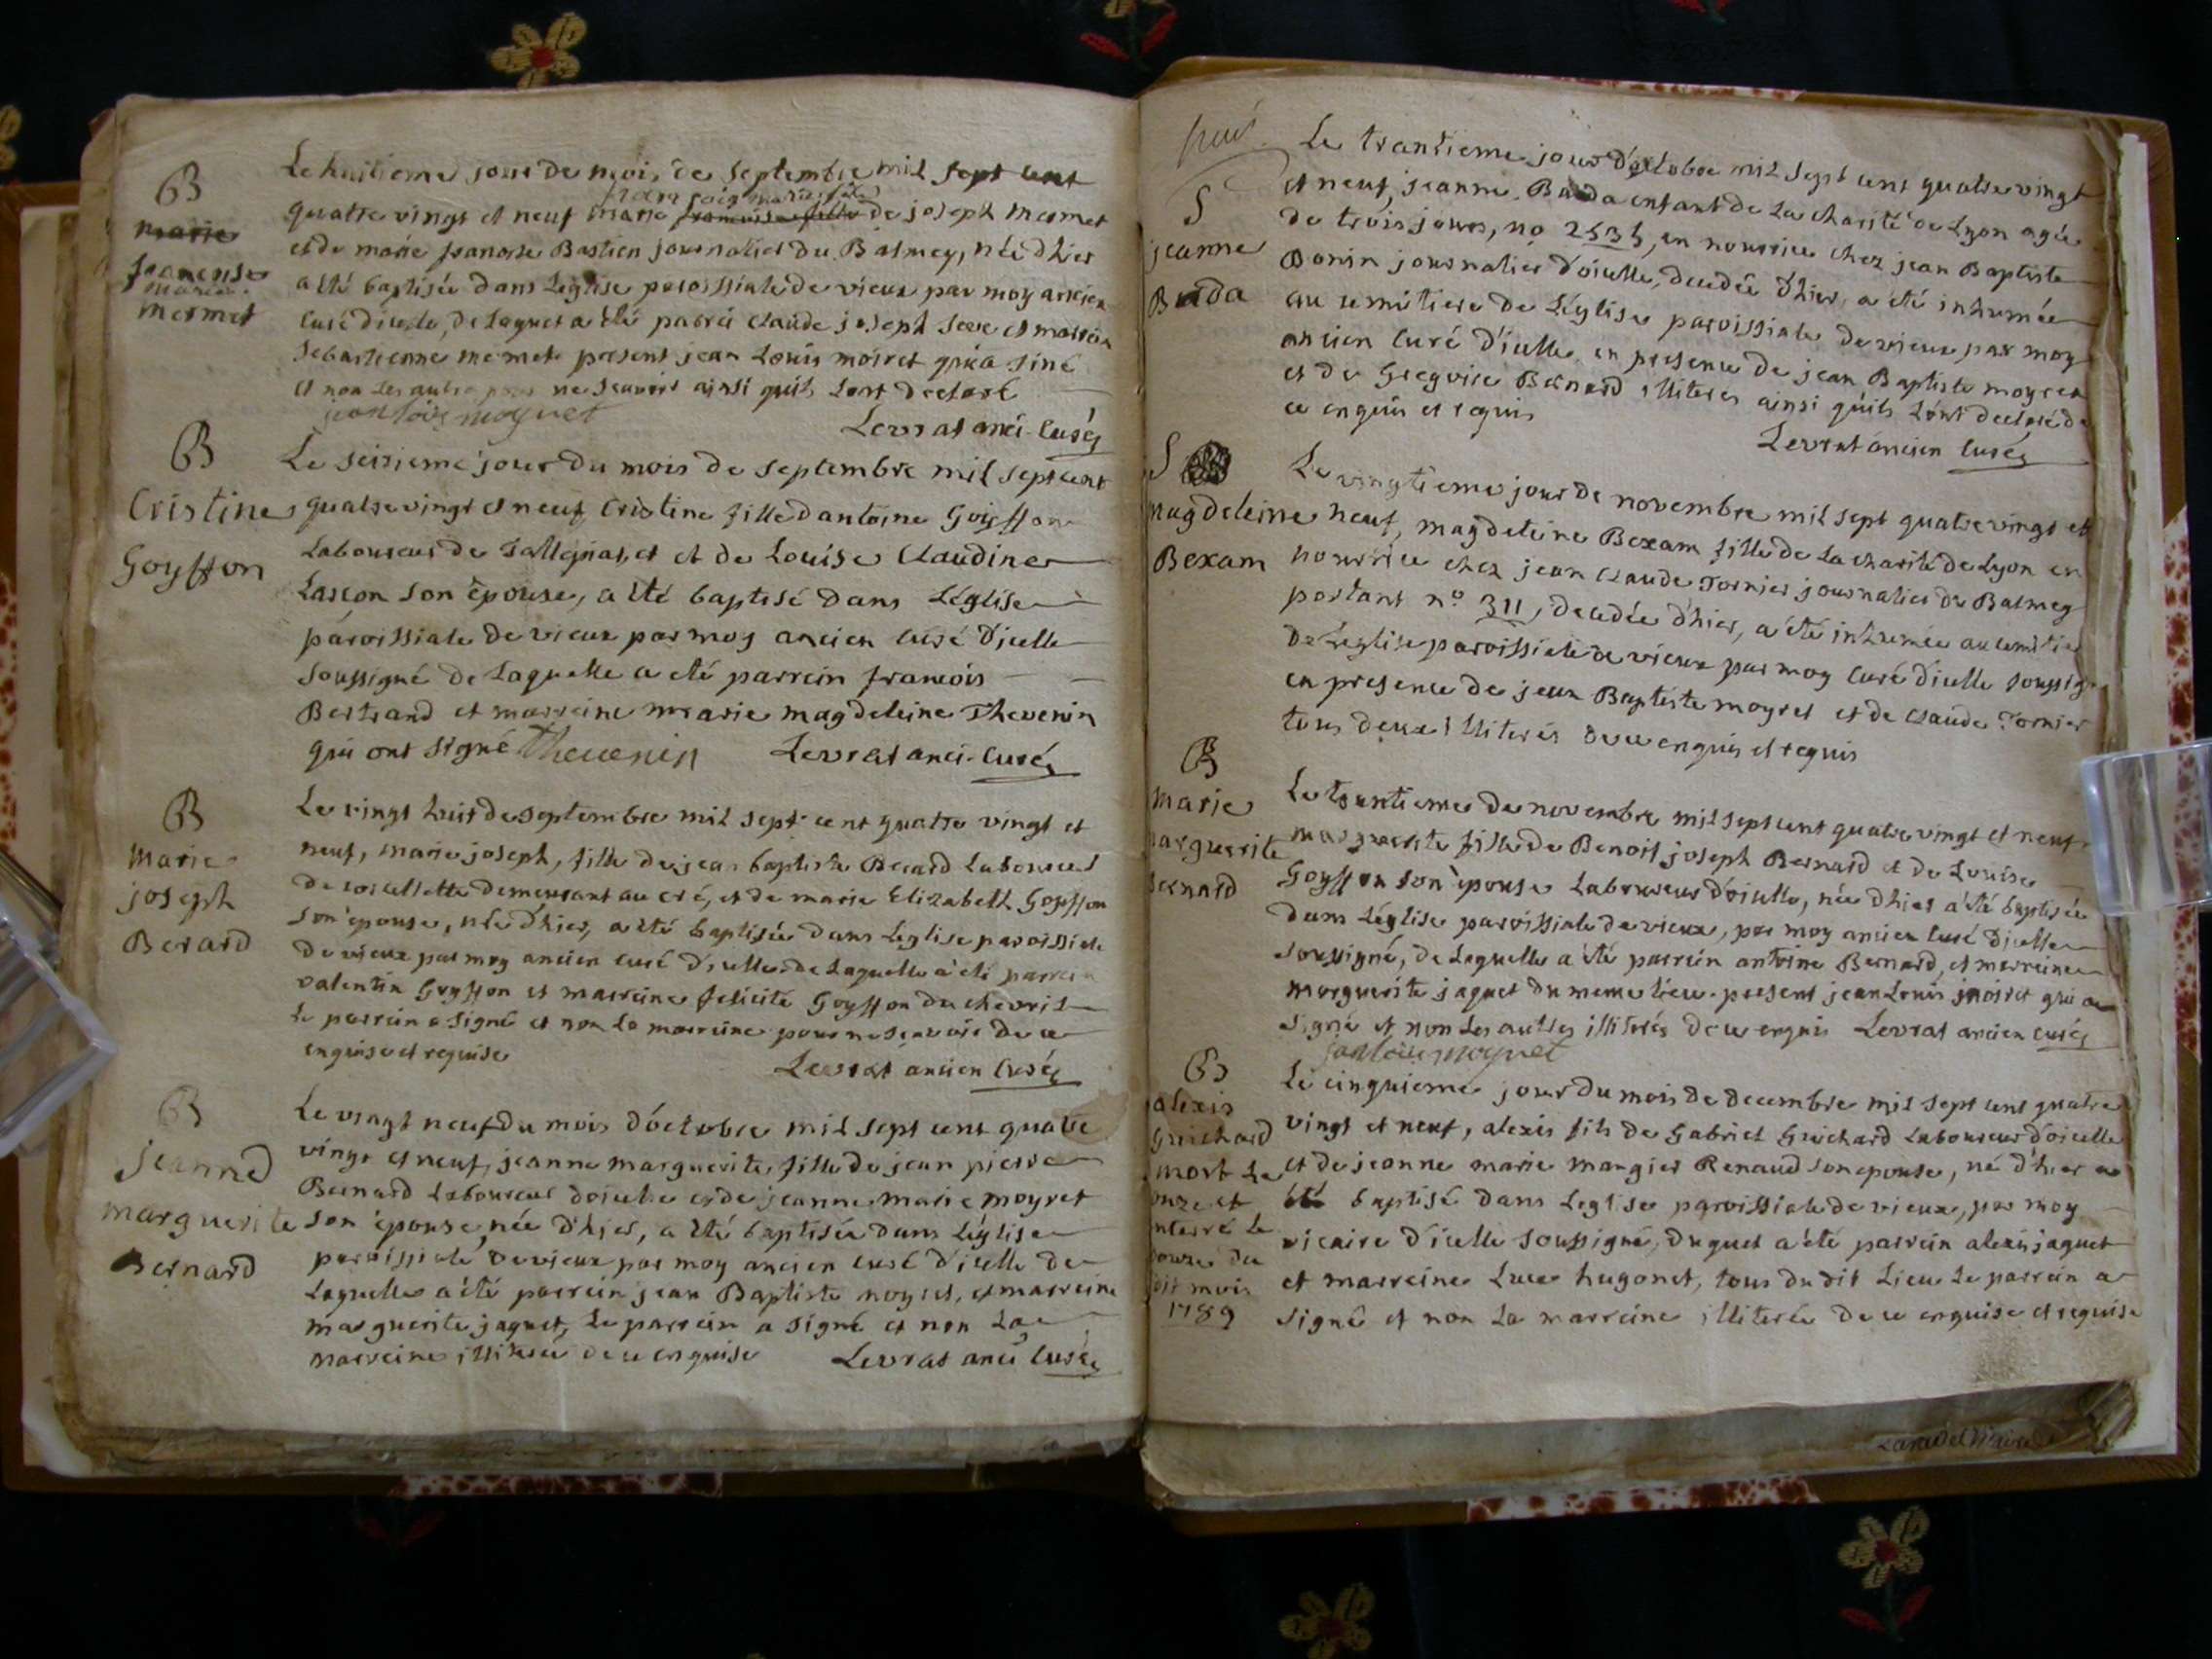 B
marie
francoise
marie
mermet
Le huitieme jour de mois de Septembre mil sept cent
quatre vingt et neuf marie francoise fille de joseph mermet
et de marie francoise Bastien journalier du Balmey, née d'hier
a été baptisée dans Léglise paroissiale de vieux par moy ancien
curé d'icelle, de laquet a été claude joseph et
Sebastienne mermet present jean Louis moiret qui a siné
et non les autre pour ne scavoir ainsi quils Lont declaré
jean loüis moyret
Levrat anci. curé
B
Cristine
Goyffon
Le seizieme jour du mois de septembre mil sept cent
quatre vingt et neuf Cristine fille d'antoine Goiffon
Laboureur de et de Louise Claudine
Lascon son épouse, a été baptisé dans Léglise
paroissiale de vieux par moy ancien curé d'icelle
soussigné de Laquelle a été parrein francois
Bertrand et marreine marie magdeleine Thevenin
qui ont signé Thevenin Levrat anci. curé
B
Marie
joseph
Berard
Le vingt huit de septembre mil sept cent quatre vingt et
neuf, marie joseph, fille de jean baptiste Berard Laboureur
de demeurant au cré, et de marie Elizabeth Goyffon
son epouse, née d'hier, a été baptisée dans Léglise paroissiale
de vieux par moy ancien curé d'icelle de Laquelle a été parrein
valentin Goyffon et marreine felicité Goyffon du chevril
Le parrein a signé et non La marreine pour ne scavoir de ce
enquise et requise
Levrat ancien Curé
B
jeanne
marguerite
Bernard
Le vingt neuf du mois d'octobre mil sept cent quatre
vingt et neuf, jeanne marguerite, fille de jean pierre
Bernard Laboureur doicelle et de jeanne marie moyret
son épouse, née d'hier, a été baptisée dans Léglise
paroissiale de vieux par moy ancien curé d'icelle de
Laquelle a été parrein jean Baptiste moyret, et marreine
marguerite jaquet, Le parrein a signé et non La
marreine illiterée de ce enquise Levrat anci curé
S
jeanne
Bada
Le trantieme jour d'octobre mil sept cent quatre vingt
et neuf, jeanne Bada enfant de La charité de Lyon agée
de trois jours, no 2535, en nourrice chez jean Baptiste
Bonin journalier d'oicelle, decedée d'hier, a été inhumée
au cemitiere de Léglise paroissiale de vieux par moy
ancien curé d'icelle en presence de jean Baptiste moyret
et de Gregoire Bernard illiteres ainsi quils Lont declaré de
ce enquis et requis
Levrat ancien Curé
S
magdeleine
Bexam
Le vingtieme jour de novembre mil sept quatre vingt et
neuf, magdeleine Bexam fille de La charité de Lyon en
nourrice chez jean claude Tornier journalier du Balmey
portant no. 311, decedée d'hier, a été inhumée au cemitier
de Léglise paroissiale de vieux par moy curé d'icelle soussig
en presence de jean Baptiste moyret et de claude Tornier
tous deux illiterés de ce enquis et requis
B
marie
marguerite
bernard
Le trantieme de novembre mil sept cent quatre vingt et neuf
marguerite fille de Benoit joseph Bernard et de Louise
Goyffon son épouse Laboureur d'oicelle, née d'hier a été baptisée
dans Léglise paroissiale de vieux, par moy ancien curé d'icelle
soussigné, de Laquelle a été parrein antoine Bernard, et marreine
marguerite jaquet du meme lieu. present jean Louis moiret qui a
signé et non Les autres illiterés de ce enquis Levrat ancien curé
jean loüis moyret
B
alexis
Guichard
mort Le
onze et
enterré le
douze du
dit mois
1789
Le cinquieme jour du mois de decembre mil sept cent quatre
vingt et neuf, alexis fils de Gabriel Guichard Laboureur d'oicelle
et de jeanne marie mangier Renaud son epouse, né d'hier a
été baptisé dans Leglise paroissiale de vieux, par moy
vicaire d'icelle soussigné, duquet a été parrein alexis jaquet
et marreine Luce hugonet, tous du dit Lieu Le parrein a
signé et non La marreine illiterée de ce enquise et requise